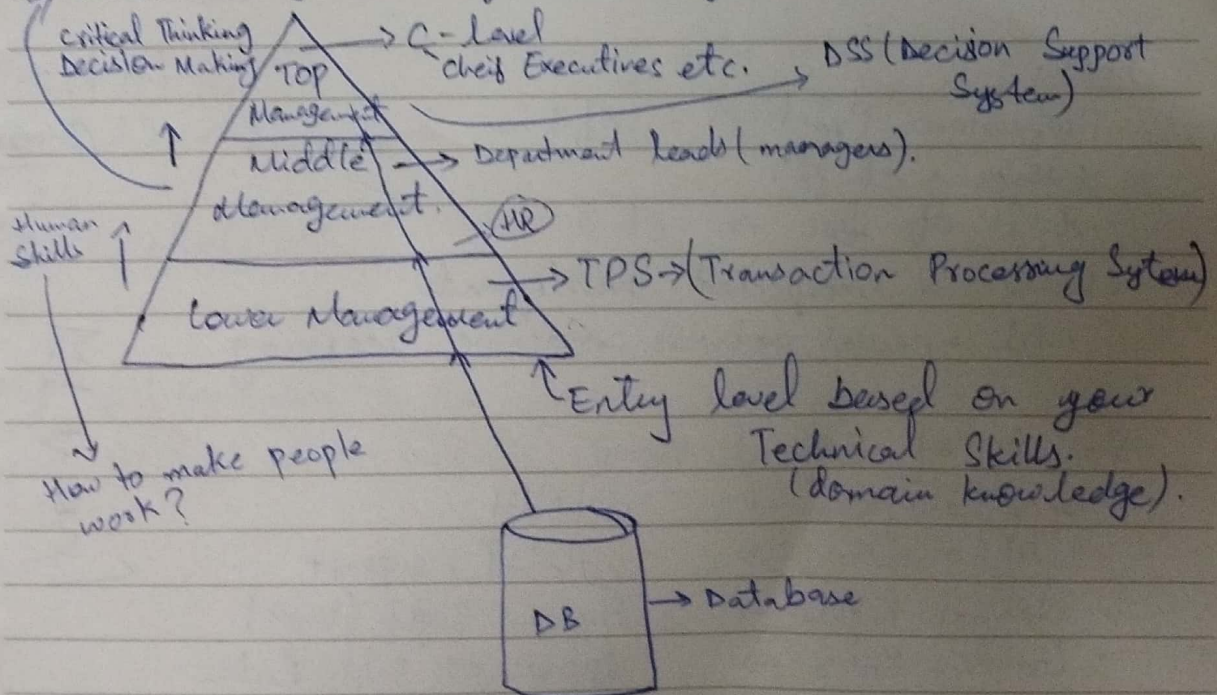 Critical Thinking
Decision Making
TOP
Management
→ C-level
cheif Executives etc.
DSS (Decision Support
System)
Middle
Management.
→ Department leads (managers).
HR
Human
Skills
→ TPS → (Transaction Processing Sytem)
Lower Management
Entry level based on your
Technical Skills.
(domain knowledge).
How to make people
work?
DB
→ Database